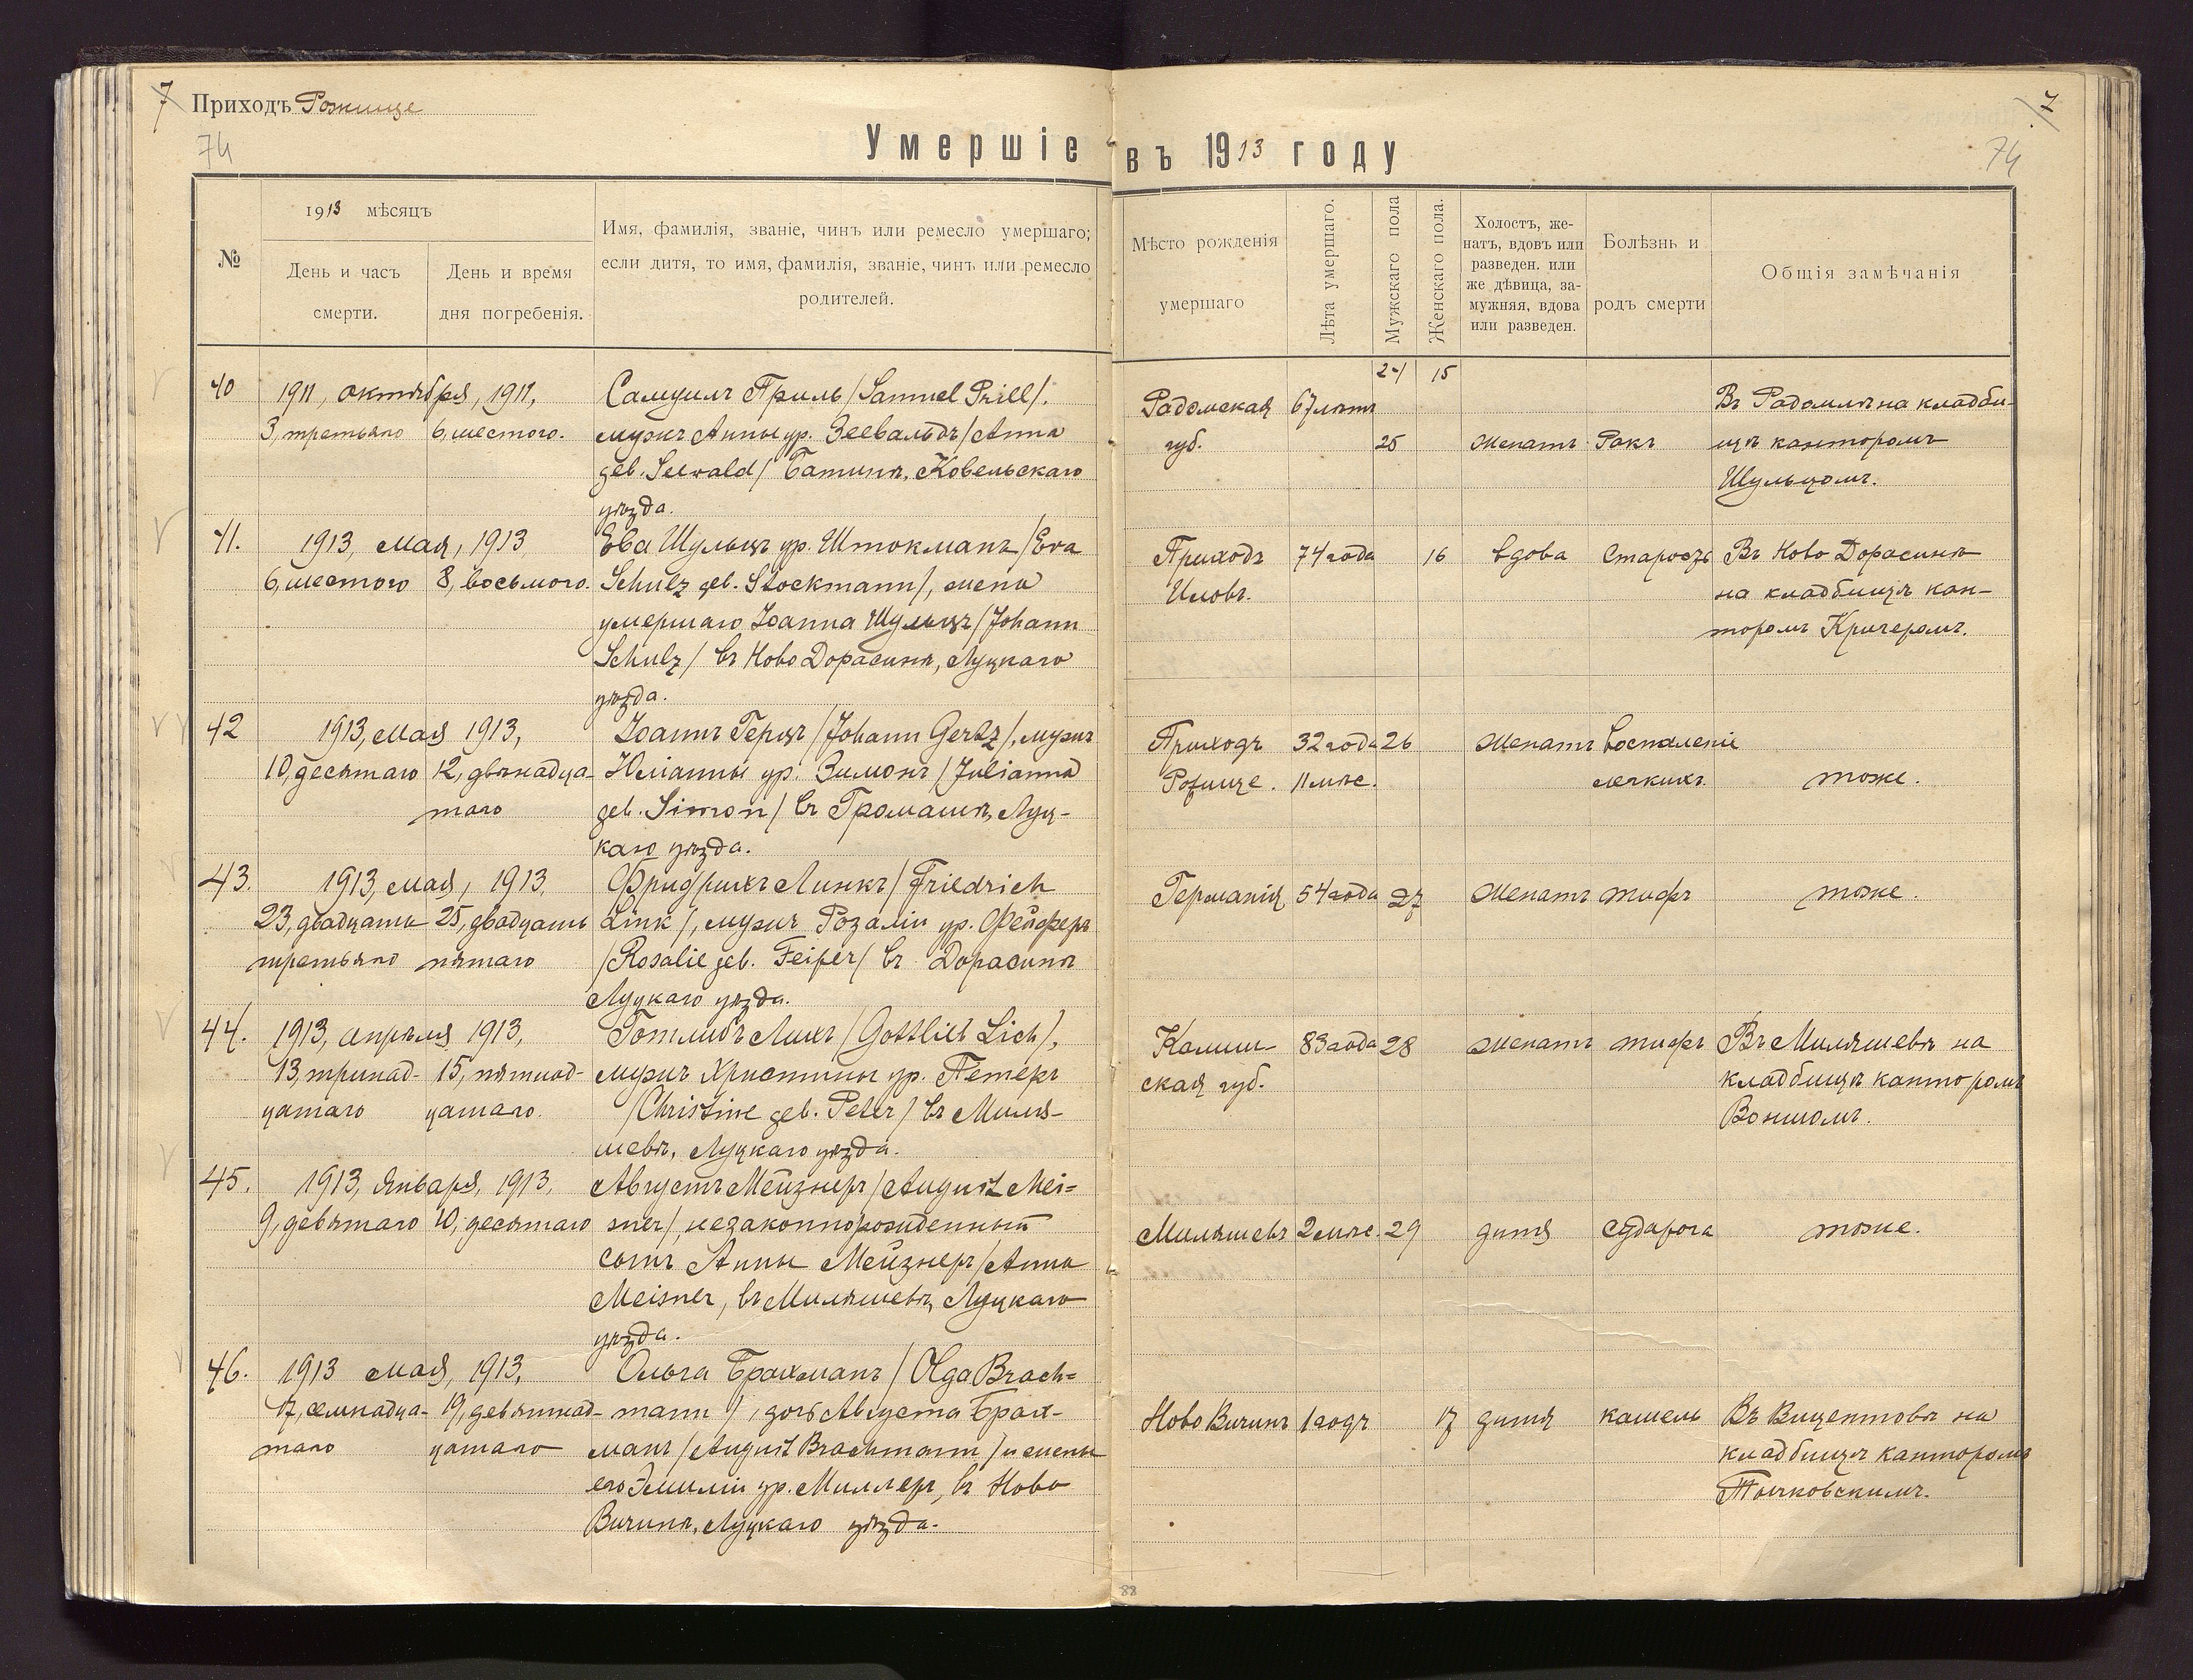 7 Приходъ Рожище
7
74
74
Умершіе въ 1913 году
№
1913 мѣсяцъ
День и часъ смерти.
День и время дня погребенія.
Имя, фамилія, званіе, чинъ или ремесло умершаго;
если дитя, то имя, фамилія, званіе, чинъ или ремесло
родителей.
Мѣсто рожденія умершаго
Лѣта умершаго.
Мужскаго пола
Женскаго пола.
Холостъ, же-
натъ, вдовъ или
разведен. или
же дѣвица, за-
мужняя, вдова
или разведен.
Болѣзнь и родъ смерти
Общія замѣчанія
24 15
40 1911, октября, 1911,
3, третьяго 6, шестого.
Самуилъ Приль /Samuel Prill/.
мужъ Анны ур. Зеевальдъ /Anna
geb. Seewald/ Батинѣ, Ковельскаго
уѣзда.
Радомская 67 лѣтъ
губ. 25 женатъ Ракъ
Въ Радомлѣ на кладби-
щѣ канторомъ
Шульцомъ.
41. 1913, мая, 1913
6, шестого 8, восьмого.
Ева Шульцъ ур. Штокманъ /Eva
Schulz geb. Stockmann/, жена
умершаго Іоанна Шульцъ /Johann
Schulz/ въ Ново Дорасинѣ, Луцкаго
уѣзда.
Приходъ 74 года 16 вдова Старость
Иловъ.
Въ Ново Дорасинѣ
на кладбищѣ кан-
торомъ Кричеромъ.
42 1913, мая 1913,
10, десятаго 12, двѣнадца-
таго
Іоаннъ Герцъ /Johann Gertz/, мужъ
Юліанны ур. Зимонъ /Julianna
geb. Simon/ въ Громашѣ, Луц-
каго уѣзда.
Приходъ 32 года 26 женатъ воспаленіе
Рожище. 11 мѣс. легкихъ. тоже.
43. 1913, мая, 1913,
23, двадцать 25, двадцать
третьяго пятаго
Фридрихъ Линкъ /Friedrich
Link/, мужъ Розаліи ур. Фейферъ
/Rosalie geb. Feifer/ въ Дорасинѣ
Луцкаго уѣзда.
Германія 54 года 27 женатъ тифъ тоже.
44. 1913, апрѣля, 1913,
13, тринад- 15, пятнад-
цатаго цатаго.
Готлибъ Лихъ /Gottlieb Lich/,
мужъ Христины ур. Петеръ
/Christine geb. Peter/ въ Миля-
шевѣ, Луцкаго уѣзда.
Калиш- 83 года 28 женатъ тифъ
ская губ.
Въ Миляшевѣ на
кладбищѣ канторомъ
45. 1913, января, 1913,
9, девятаго 10, десятаго
Августъ Мейзнеръ /August Mei=
sner/, незаконнорожденный
сынъ Анны Мейзнеръ /Anna
Meisner, въ Миляшевѣ, Луцкаго
уѣзда.
Миляшевъ 2 мѣс. 29 дитя судорога тоже.
46. 1913 мая, 1913,
17, семнадца- 19, девятнад-
таго цатаго
Ольга Брахманъ /Olga Brach=
mann/, дочь Августа Брах-
манъ /August Brachmann/ и жены
его Эмиліи ур. Миллеръ, въ Ново
Вичинѣ, Луцкаго уѣзда.
Ново Вичинъ 1 годъ 17 дитя кашель
Въ Вицентовѣ на
кладбищѣ канторомъ
88